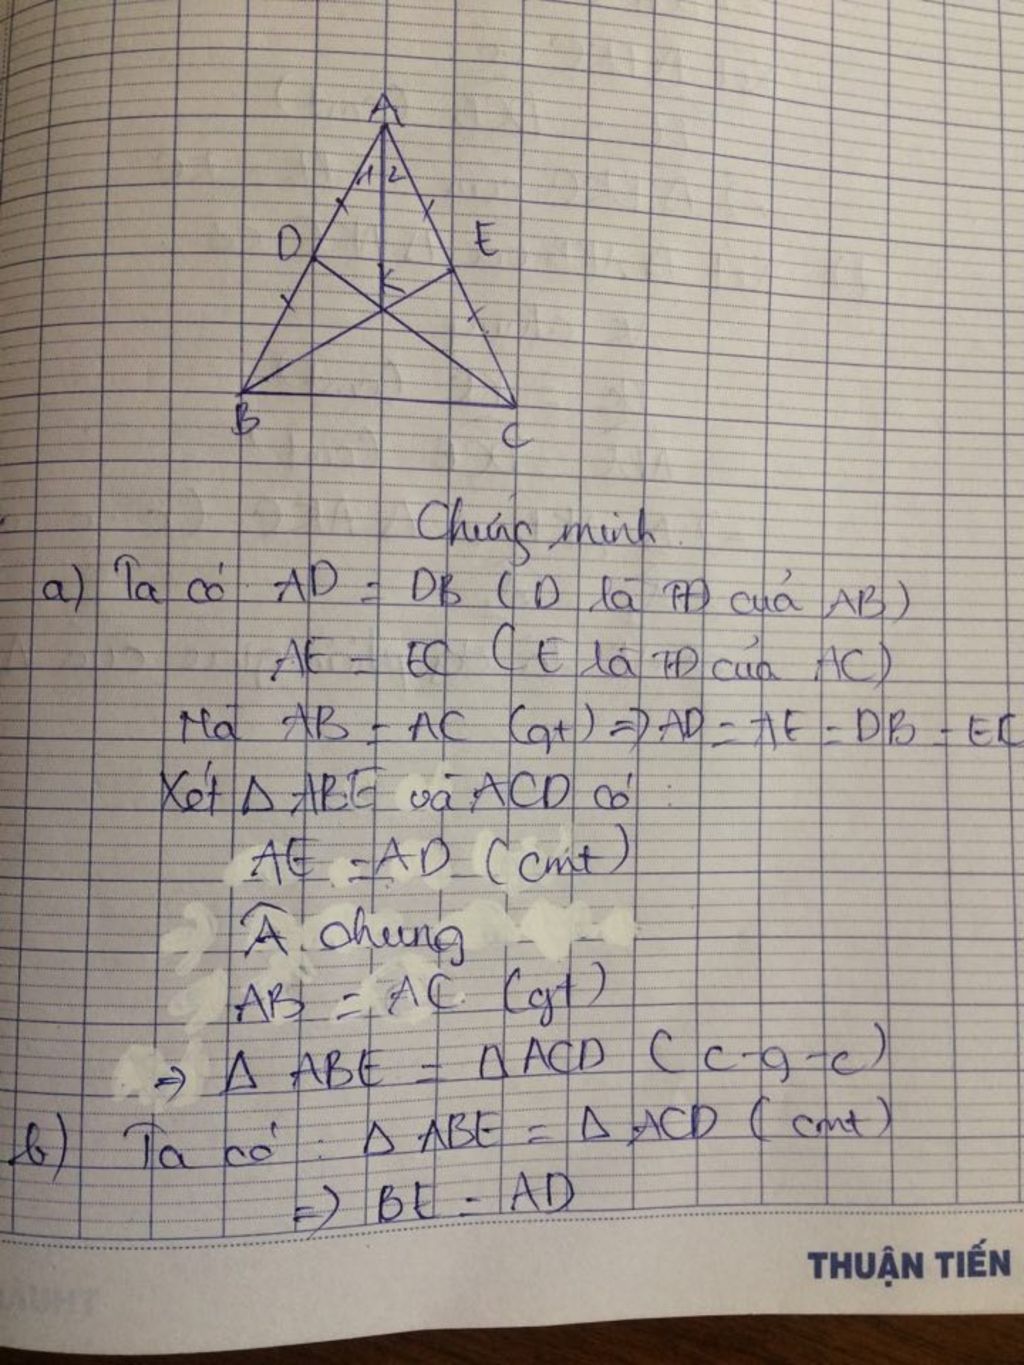 A
1 2
D
E
K
B
C
Chứng minh
a) Ta có: AD = DB (D là TĐ của AB)
AE = EC (E là TĐ của AC)
Mà AB = AC (gt) => AD = AE = DB = EC
Xét Δ ABE và ACD có:
AE = AD (cmt)
Â chung
AB = AC (gt)
=> Δ ABE = Δ ACD (c-g-c)
b) Ta có: Δ ABE = Δ ACD (cmt)
=> BE = AD
THUẬN TIẾN